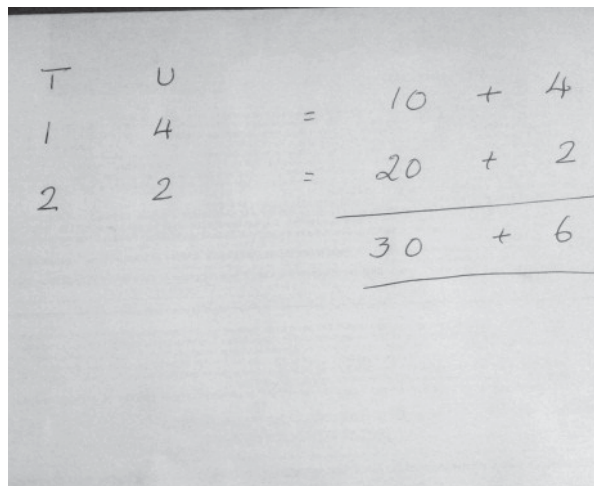 T U
1 4 = 10 + 4
2 2 = 20 + 2
30 + 6